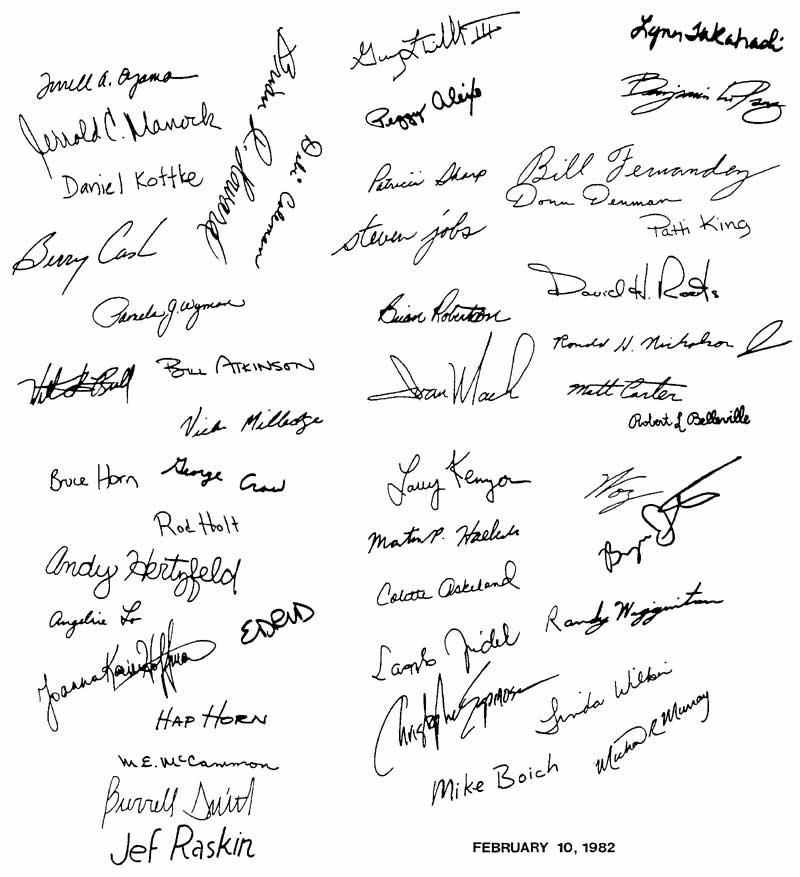 Terrell A. Oyama
Jerrold C. Manock
Daniel Kottke
Berry Cash
Pamela G. Wyman
Bill Atkinson
Vicki Milledge
Bruce Horn
George Crow
Rod Holt
Andy Hertzfeld
Angeline Lo
EDRUD
Joanna Karin Hoffman
Hap Horn
M.E. McCammon
Burrell Smith
Jef Raskin
Brian R. Howard
Debi Coleman
Peggy Alexio
Patricia Sharp
steven jobs
Brian Robertson
Ivan Mach
Larry Kenyon
Martin P. Haeberli
Colette Askeland
Laszlo Zidek
Christopher Espinosa
Mike Boich
Lynn Takahashi
Benjamin L. Pang
Bill Fernandez
Donn Denman
Patti King
David H. Roots
Ronald H. Nicholson Jr
Matt Carter
Robert L Belleville
Woz
Bryan
Randy Wigginton
Linda Wilkin
Michael R Murray
FEBRUARY 10, 1982